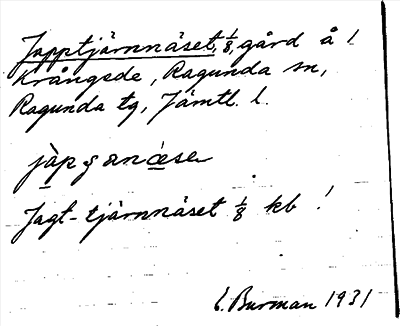 Japptjärnnäset, 1/8, gård å l
Krångede, Ragunda sn,
Ragunda tg, Jämtl. l.
Jagt-tjärnnäset 1/8 kb !
E. Burman 1931